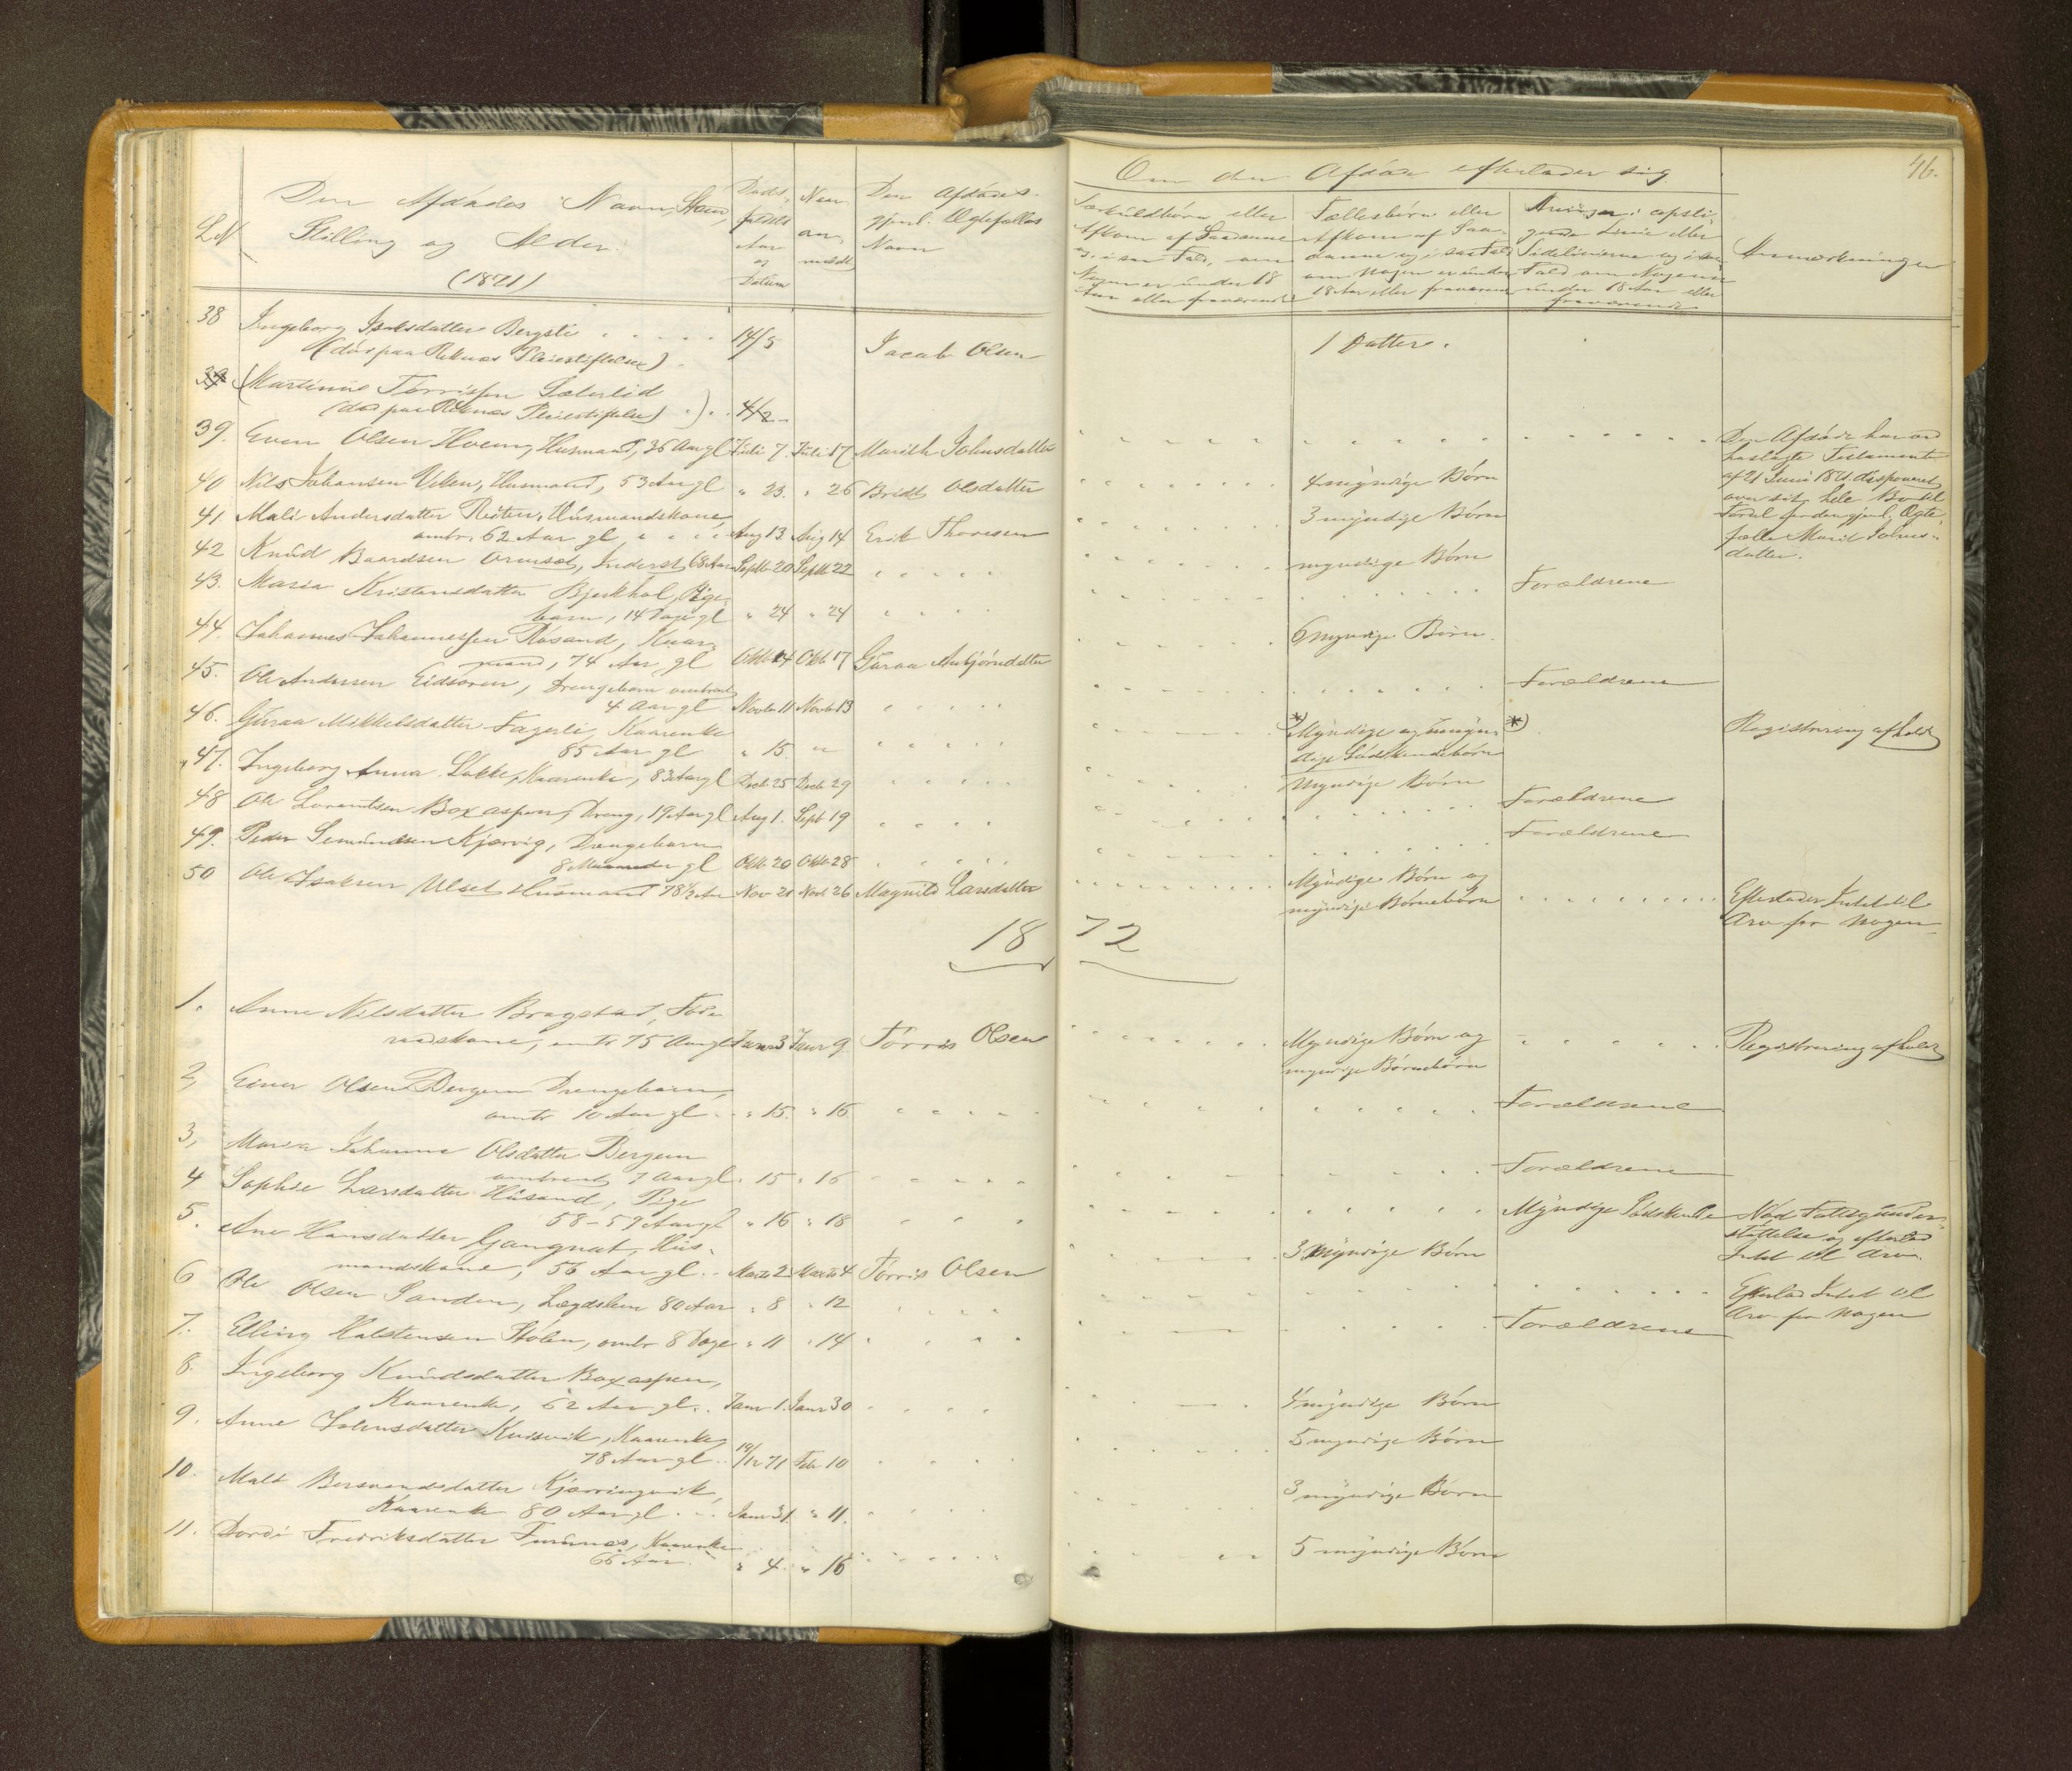 46.
LN
Den Afdødes Navn, Stand,
Stilling og Alder.
(1871)
Døds-
faldets
Aar
og
Datum
Naar
an-
meldt
Den Afdødes
gjenl. Ægtefælles
Navn
Om den Afdøde efterlader sig
Særkuldbørn eller
Afkom af Saadanne
og, i saa Fald, om
Nogen er under 18
Aar eller fraværende
Fællesbørn eller
Afkom af Saa-
danne og i saa Fald
om Nogen er under
18 Aar eller fraværende
Arvinger i opsti-
gende Linie eller
Sidelinierne og i saa
Fald om Nogen er
under 18 Aar eller
fraværende
Anmærkninger
38 Ingeborg Isaksdatter Bergsli 14/5 Jacob Olsen 1 Datter.
(død paa Reknæs Pleiestiftelse)
39 (Martinus Tørrissen Sæterlid
(død paa Reknæs Pleiestiftelse) 4/2
39. Even Olsen Hoem, Husmand, 36 Aar gl Juli 7. Juli 17 Marith Johnsdatter
Den Afdøde har ved
Testamente
af 21 Juni 1871 disponeret
over sit hele Bo til
Fordel for den gjenl. Ægte-
fælle Marit Johns-
datter.
40 Nils Johansen Viken, Husmand, 53 Aar gl " 23. " 26 Bridt Olsdatter 4 myndige Børn
41. Mali Andersdatter Reiten, Husmandskone,
omtr. 62 Aar gl Aug 13 Aug 14 Erik Thoresen 3 myndige Børn
42 Knud Baardsen Ormset, Inderst, 68 Aar Septb 20 Septb 22 myndige Børn
43. Maria Kristensdatter Bjerkhol, Pige-
barn, 14 Dage gl " 24 " 24 Forældrene
44. Johannes Johannessen Røsand, Kaar-
mand, 74 Aar gl Oktb 14 Oktb 17 Guraa Asbjørnsdatter 6 myndige Børn.
45. Ole Andersen Eidsøren, Drengebarn omtrent
4 Aar gl Novbr 11 Novbr 13 Forældrene
46. Guraa Mikkelsdatter Fagerli, Kaarenke
85 Aar gl " 15. " "
*) Myndige og umyn-
dige Sødskendebørn *)
Registrering afholdt
47. Ingeborg Anna Løkke, Kaarenke, 83 Aar gl Decb 25 Decb 29 Myndige Børn
48 Ole Lorentsen Boxaspen, Dreng, 19 Aar gl Aug 1. Sept 19 Forældrene
49. Peder Semundsen Kjørvig, Drengebarn
8 Maaneder gl Oktb 20 Oktb 28 Forældrene
50 Ole Isaksen Ulset Husmand 78 1/2 Aar Nov 21 Novb 26 Magnild Larsdatter
Myndige Børn og
myndige Børnebørn
Efterlader Intet til
Arv for Nogen
1872
1. Anne Nilsdatter Bragstad, Føde-
raadskone, omtr 75 Aar gl Janr 3 Janr 9 Tørris Olsen
Myndige Børn og
myndige Børnebørn
Registrering afholdt
2, Einer Olsen Bergem Drengebarn,
omtr 10 Aar gl " 15. " 16 Forældrene
3, Maria Johanna Olsdatter Bergem
omtrent 7 Aar gl. " 15 " 16 Forældrene
4 Sophie Larsdatter Husand, Pige
58-59 Aar gl " 16 " 18 Myndige Sødskende
Nød Fattigunder-
støttelse og efterlod
Intet til Arv.
5. Ane Hansdatter Gangnat, Hus-
mandskone, 56 Aar gl. Marts 2 Marts 4 Tørris Olsen 3 myndige Børn
6 Ole Olsen Sanden, Lægdslem 80 Aar " 8 " 12
Efterlod Intet til
Arv for Nogen
7. Elling Halstensen Stølen, omtr 8 Dage " 11 " 14 Forældrene
8. Ingeborg Knudsdatter Boxaspen,
Kaarenke, 62 Aar gl. Janr 1. Janr 30 4 myndige Børn
9. Anne Johnsdatter Kvisvik, Kaarenke,
78 Aar gl. 19/12 71 Febr 10 5 myndige Børn
10. Malt Bersvendsdatter Kjørringvik,
Kaarenke 80 Aar gl. Janr 31. " 11. 3 myndige Børn
11. Dordi Fredriksdatter Furunes, Kaarenke
66 Aar. " 4. " 16 5 myndige Børn